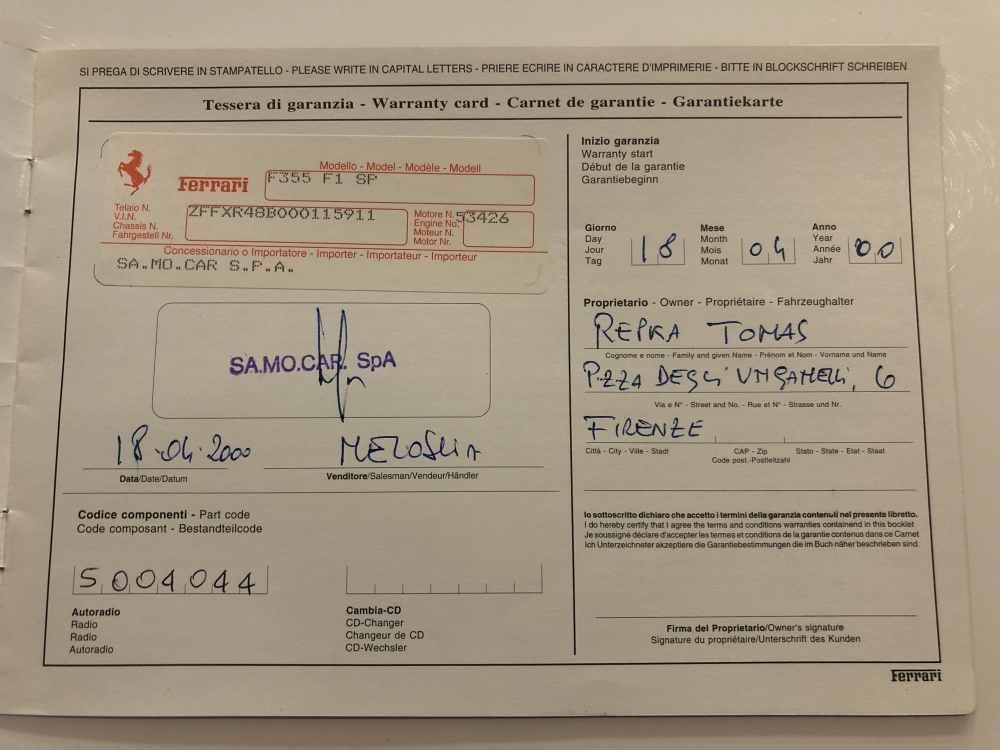 SI PREGA DI SCRIVERE IN STAMPATELLO - PLEASE WRITE IN CAPITAL LETTERS - PRIERE ECRIRE IN CARACTERE D'IMPRIMERIE - BITTE IN BLOCKSCHRIFT SCHREIBEN
Tessera di garanzia - Warranty card - Carnet de garantie - Garantiekarte
Modello - Model - Modèle - Modell
Ferrari
F355 F1 SP
Telaio N.
V.I.N.
Chassis N.
Fahrgestell Nr.
ZFFXR48B000115911
Motore N.
Engine No.
Moteur N.
Motor Nr.
53426
Concessionario o Importatore - Importer - Importateur - Importeur
SA.MO.CAR S.P.A.
SA.MO.CAR. SpA
18.04.2000
Data/Date/Datum
Venditore/Salesman/Vendeur/Händler
Codice componenti - Part code
Code composant - Bestandteilcode
5004044
Autoradio
Radio
Radio
Autoradio
Cambia-CD
CD-Changer
Changeur de CD
CD-Wechsler
Inizio garanzia
Warranty start
Début de la garantie
Garantiebeginn
Giorno
Day
Jour
Tag
18
Mese
Month
Mois
Monat
04
Anno
Year
Année
Jahr
00
Proprietario - Owner - Propriétaire - Fahrzeughalter
REPKA TOMAS
Cognome e nome - Family and given Name - Prénom et Nom - Vorname und Name
P.ZZA DEGLI UNGANELLI, 6
Via e N° - Street and No. - Rue et N° - Strasse und Nr.
FIRENZE
Città - City - Ville - Stadt
CAP - Zip
Code post.-Postleitzahl
Stato - State - Etat - Staat
Io sottoscritto dichiaro che accetto i termini della garanzia contenuti nel presente libretto.
I do hereby certify that I agree the terms and conditions warranties containend in this booklet
Je soussigné déclare d'accepter les termes et conditions de la garantie contenus dans ce Carnet
Ich Unterzeichneter akzeptiere die Garantiebestimmungen die im Buch näher beschrieben sind.
Firma del Proprietario/Owner's signature
Signature du propriétaire/Unterschrift des Kunden
Ferrari